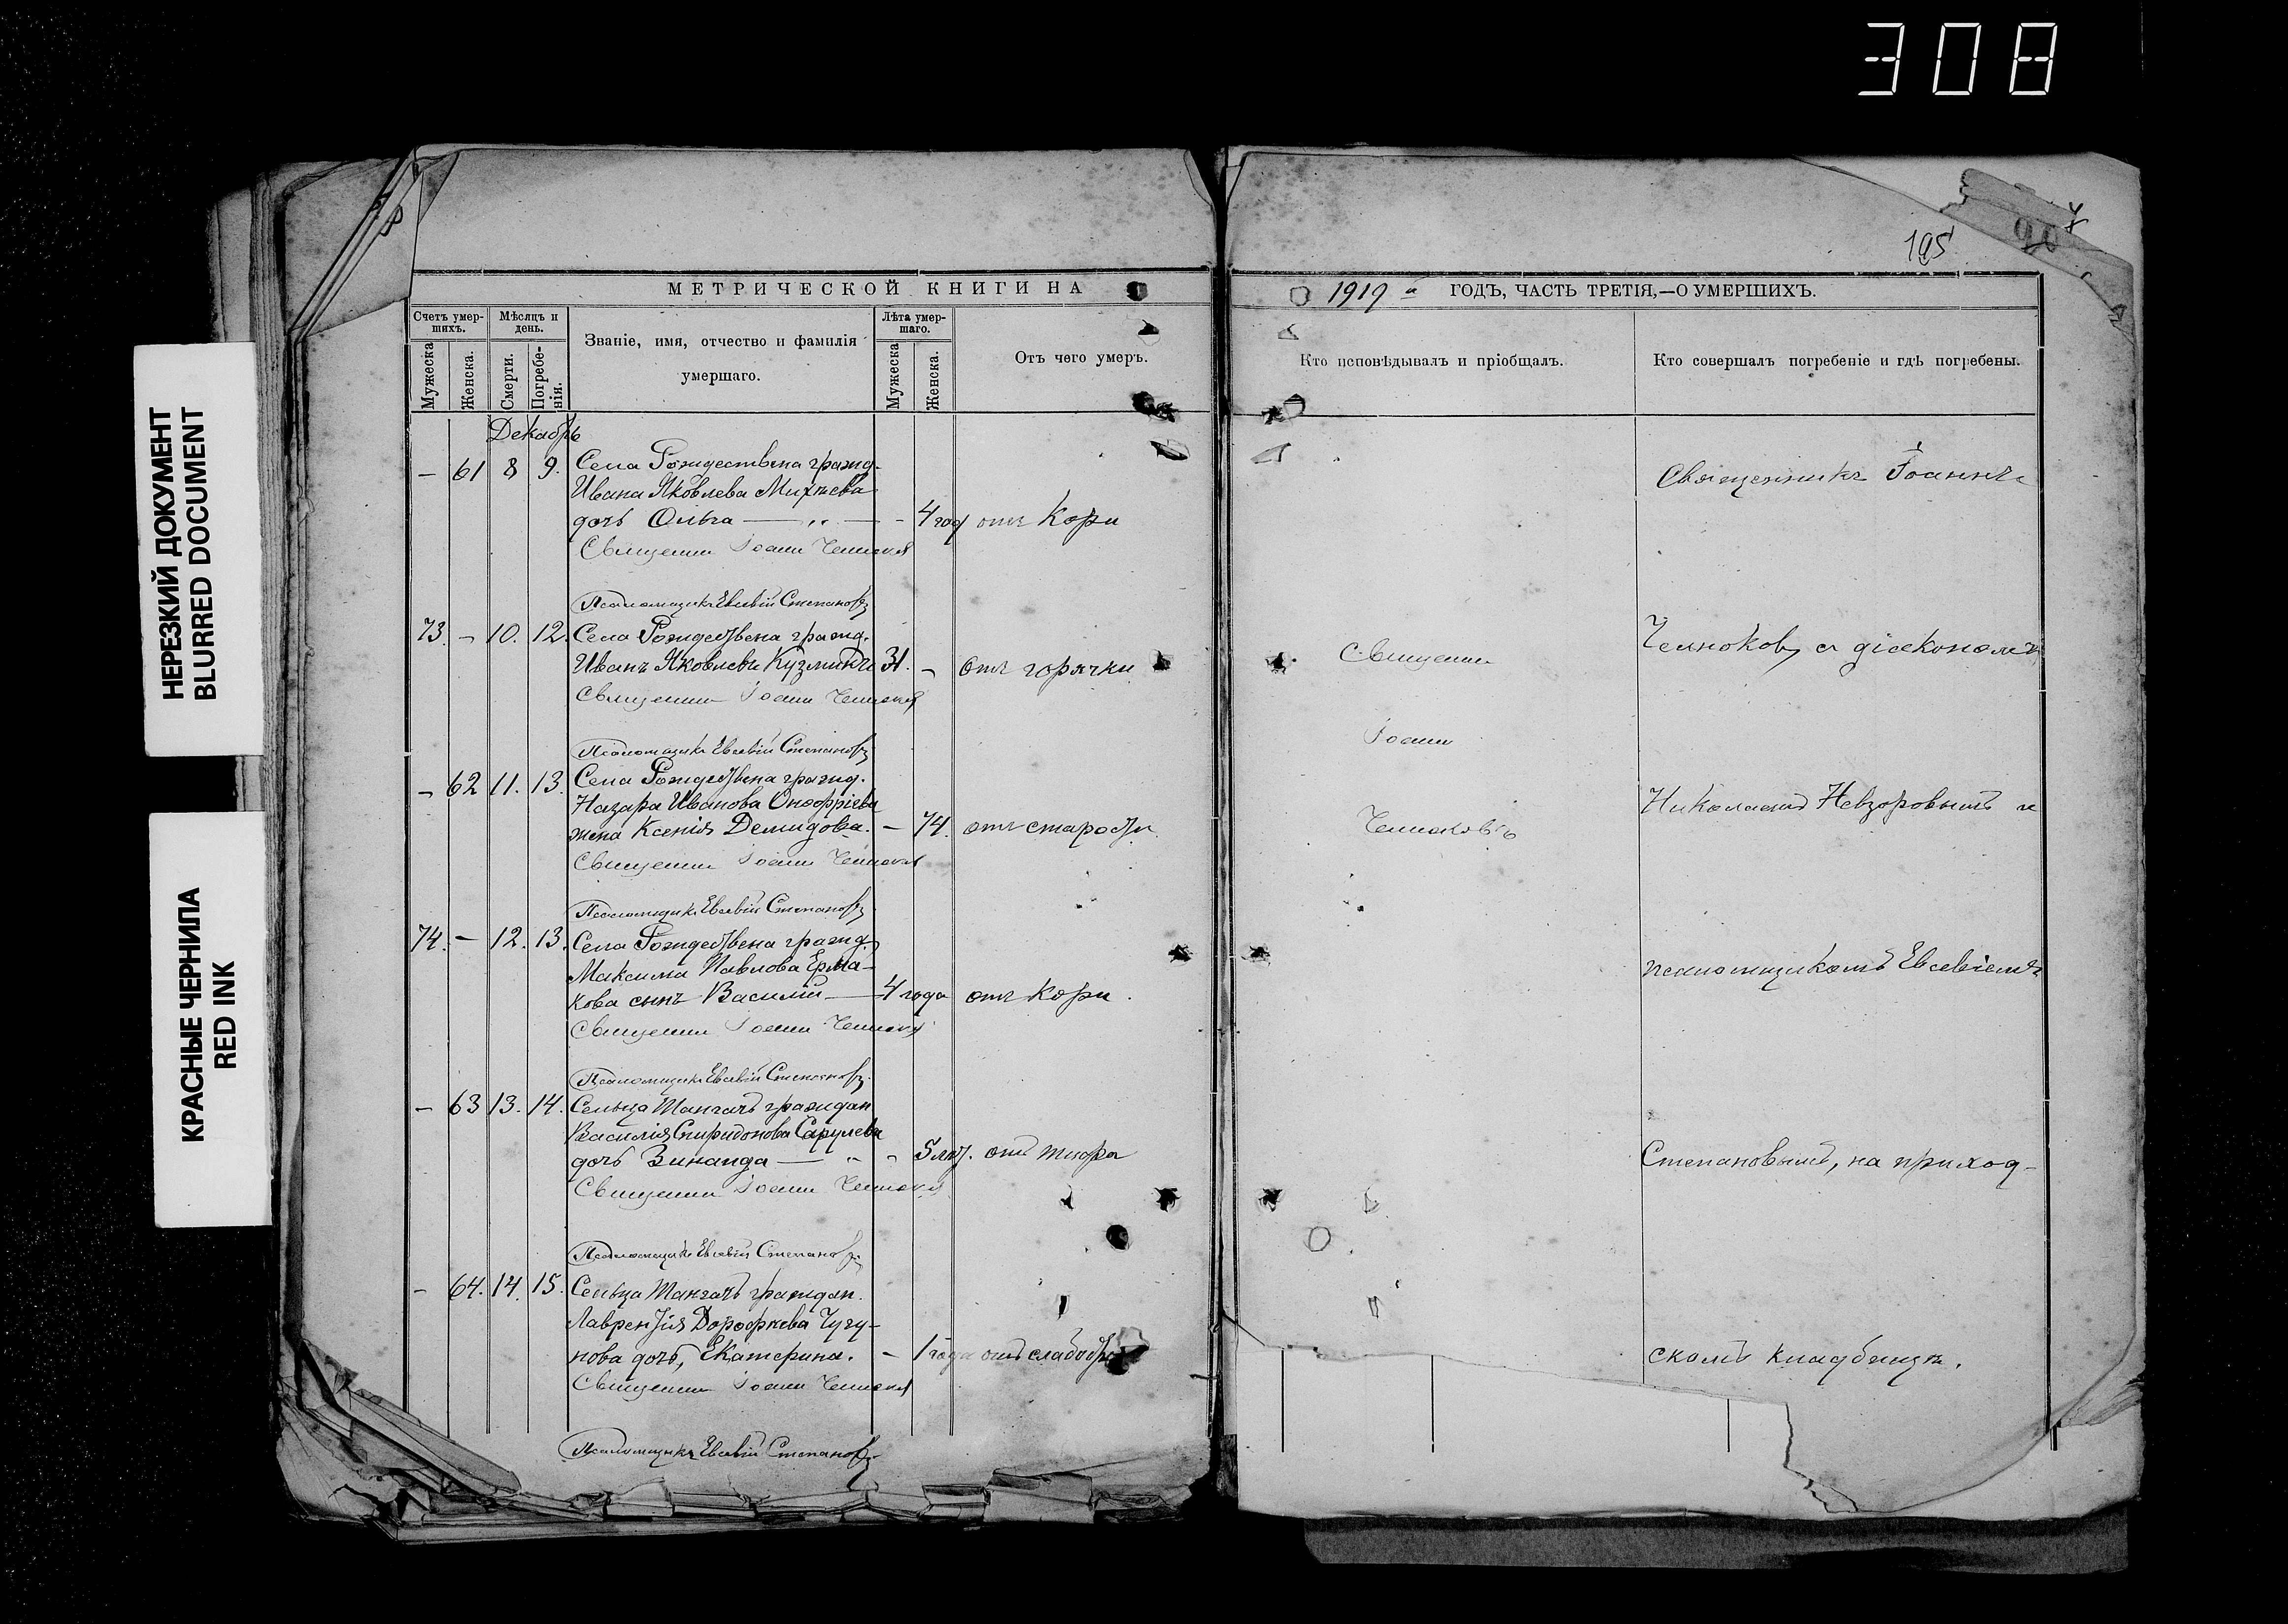 308
НЕРЕЗКИЙ ДОКУМЕНТ
BLURRED DOCUMENT
КРАСНЫЕ ЧЕРНИЛА
RED INK
195
МЕТРИЧЕСКОЙ КНИГИ НА
Счетъ умер-
шихъ.
Мужеска
Женска.
Мѣсяцъ и
день.
Смерти.
Погребе-
нія.
Званіе, имя, отчество и фамилія
умершаго.
Лѣта умер-
шаго.
Мужеска
Женска.
Отъ чего умеръ.
Декабрь
— 61 8 9. Села Рождествена гражд.
Ивана Яковлева Михѣева
дочь Ольга — „ — - 4 год отъ Кори
Священник Іоанн Челноков
Псаломщикъ Евсевій Степановъ
73. — 10. 12. Села Рождествена гражд.
Иванъ Яковлевъ Кузминъ 31. — Отъ горячки
Священник Іоанн Челноков
Псаломщикъ Евсевій Степановъ
— 62 11. 13. Села Рождествена гражд.
Назара Иванова Онофріева
жена Ксенія Демидова. — 74. отъ старости
Священник Іоанн Челноков
Псаломщикъ Евсевій Степановъ
74. — 12. 13. Села Рождествена гражд.
Максима Павлова Ерма-
кова сынъ Василій — 4 года отъ Кори.
Священник Іоанн Челноков
Псаломщикъ Евсевій Степановъ.
— 63 13. 14. Сельца Мангачъ граждан
Василія Спиридонова
дочь Зинаида — „ „ 5 отъ тифа
Священник Іоанн Челноков
Псаломщикъ Евсевій Степановъ.
- 64. 14. 15. Сельца Мангачъ граждан.
Лаврентія Дорофѣева Чугу-
нова дочь, Екатерина. — 1 года отъ слабости
Священник Іоанн Челноков
Псаломщикъ Евсевій Степановъ.
1919 й ГОДЪ, ЧАСТЬ ТРЕТІЯ,—О УМЕРШИХЪ.
Кто исповѣдывалъ и пріобщалъ.
Кто совершалъ погребеніе и гдѣ погребены.
Священник
Іоанн
Челноковъ
Священникъ Іоаннъ
Челноков, съ діакономъ
Николаемъ Невзоровымъ и
псаломщикомъ Евсевіемъ
Степановымъ, на приход-
скомъ кладбищѣ.